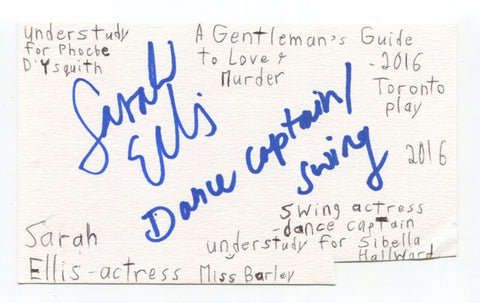 understudy
for Phoebe
D'Ysquith
A Gentleman's Guide
to Love &
Murder
-2016
Toronto
play
2016
Sarah
Ellis
Dance captain/
swing
swing actress
-dance captain
understudy for Sibella
Hallward
Miss Barley
Sarah
Ellis-actress